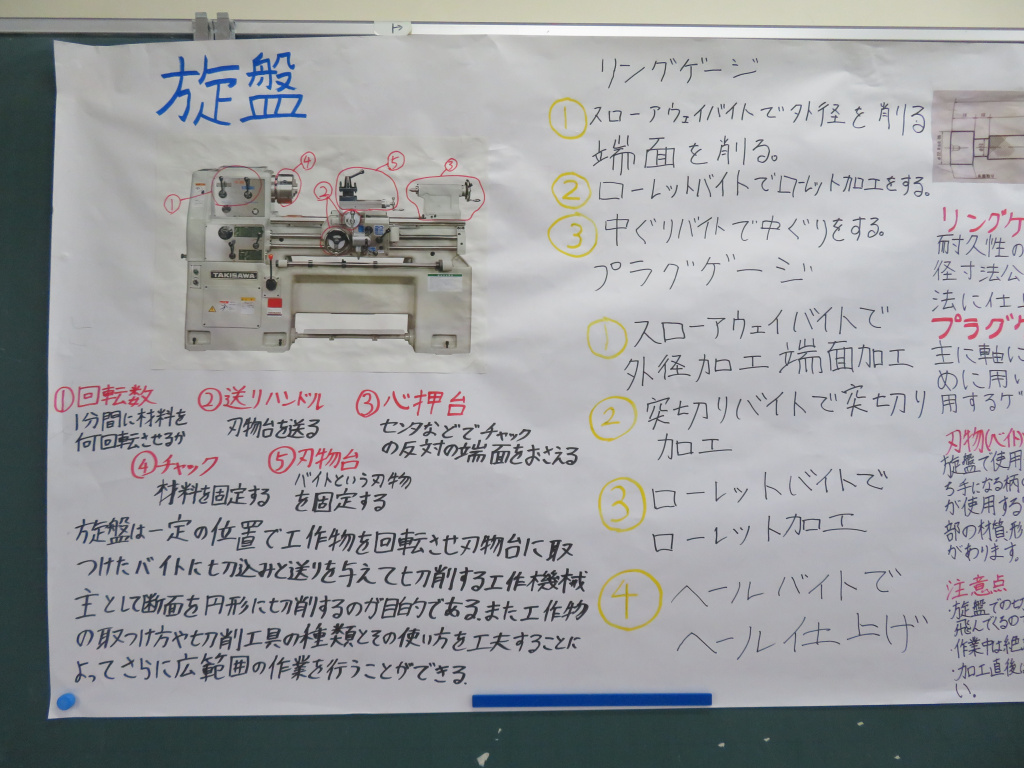 旋盤
①
②
③
④
⑤
TAKISAWA
①回転数
1分間に材料を
何回転させるか
②送りハンドル
刃物台を送る
③心押台
センタなどでチャック
の反対の端面をおさえる
④チャック
材料を固定する
⑤刃物台
バイトという刃物
を固定する
旋盤は一定の位置で工作物を回転させ刃物台に取
つけたバイトに切込みと送りを与えて切削する工作機械
主として断面を円形に切削するのが目的である。また工作物
の取つけ方や切削工具の種類とその使い方を工夫することに
よってさらに広範囲の作業を行うことができる。
リングゲージ
①スローアウェイバイトで外径を削る
端面を削る。
②ローレットバイトでローレット加工をする。
③中ぐりバイトで中ぐりをする。
プラグゲージ
①スローアウェイバイトで
外径加工 端面加工
②突切りバイトで突切り
加工
③ローレットバイトで
ローレット加工
④ヘールバイトで
ヘール仕上げ
リングゲ
耐久性の
径寸法公
法に仕上
プラグゲ
主に軸に
めに用い
用するゲ
刃物(バイト)
旋盤で使用
ち手になる柄の
が使用する
部の材質形
がわります。
注意点
・旋盤での切
飛んでくるので
・作業中は絶
・加工直後は
い。